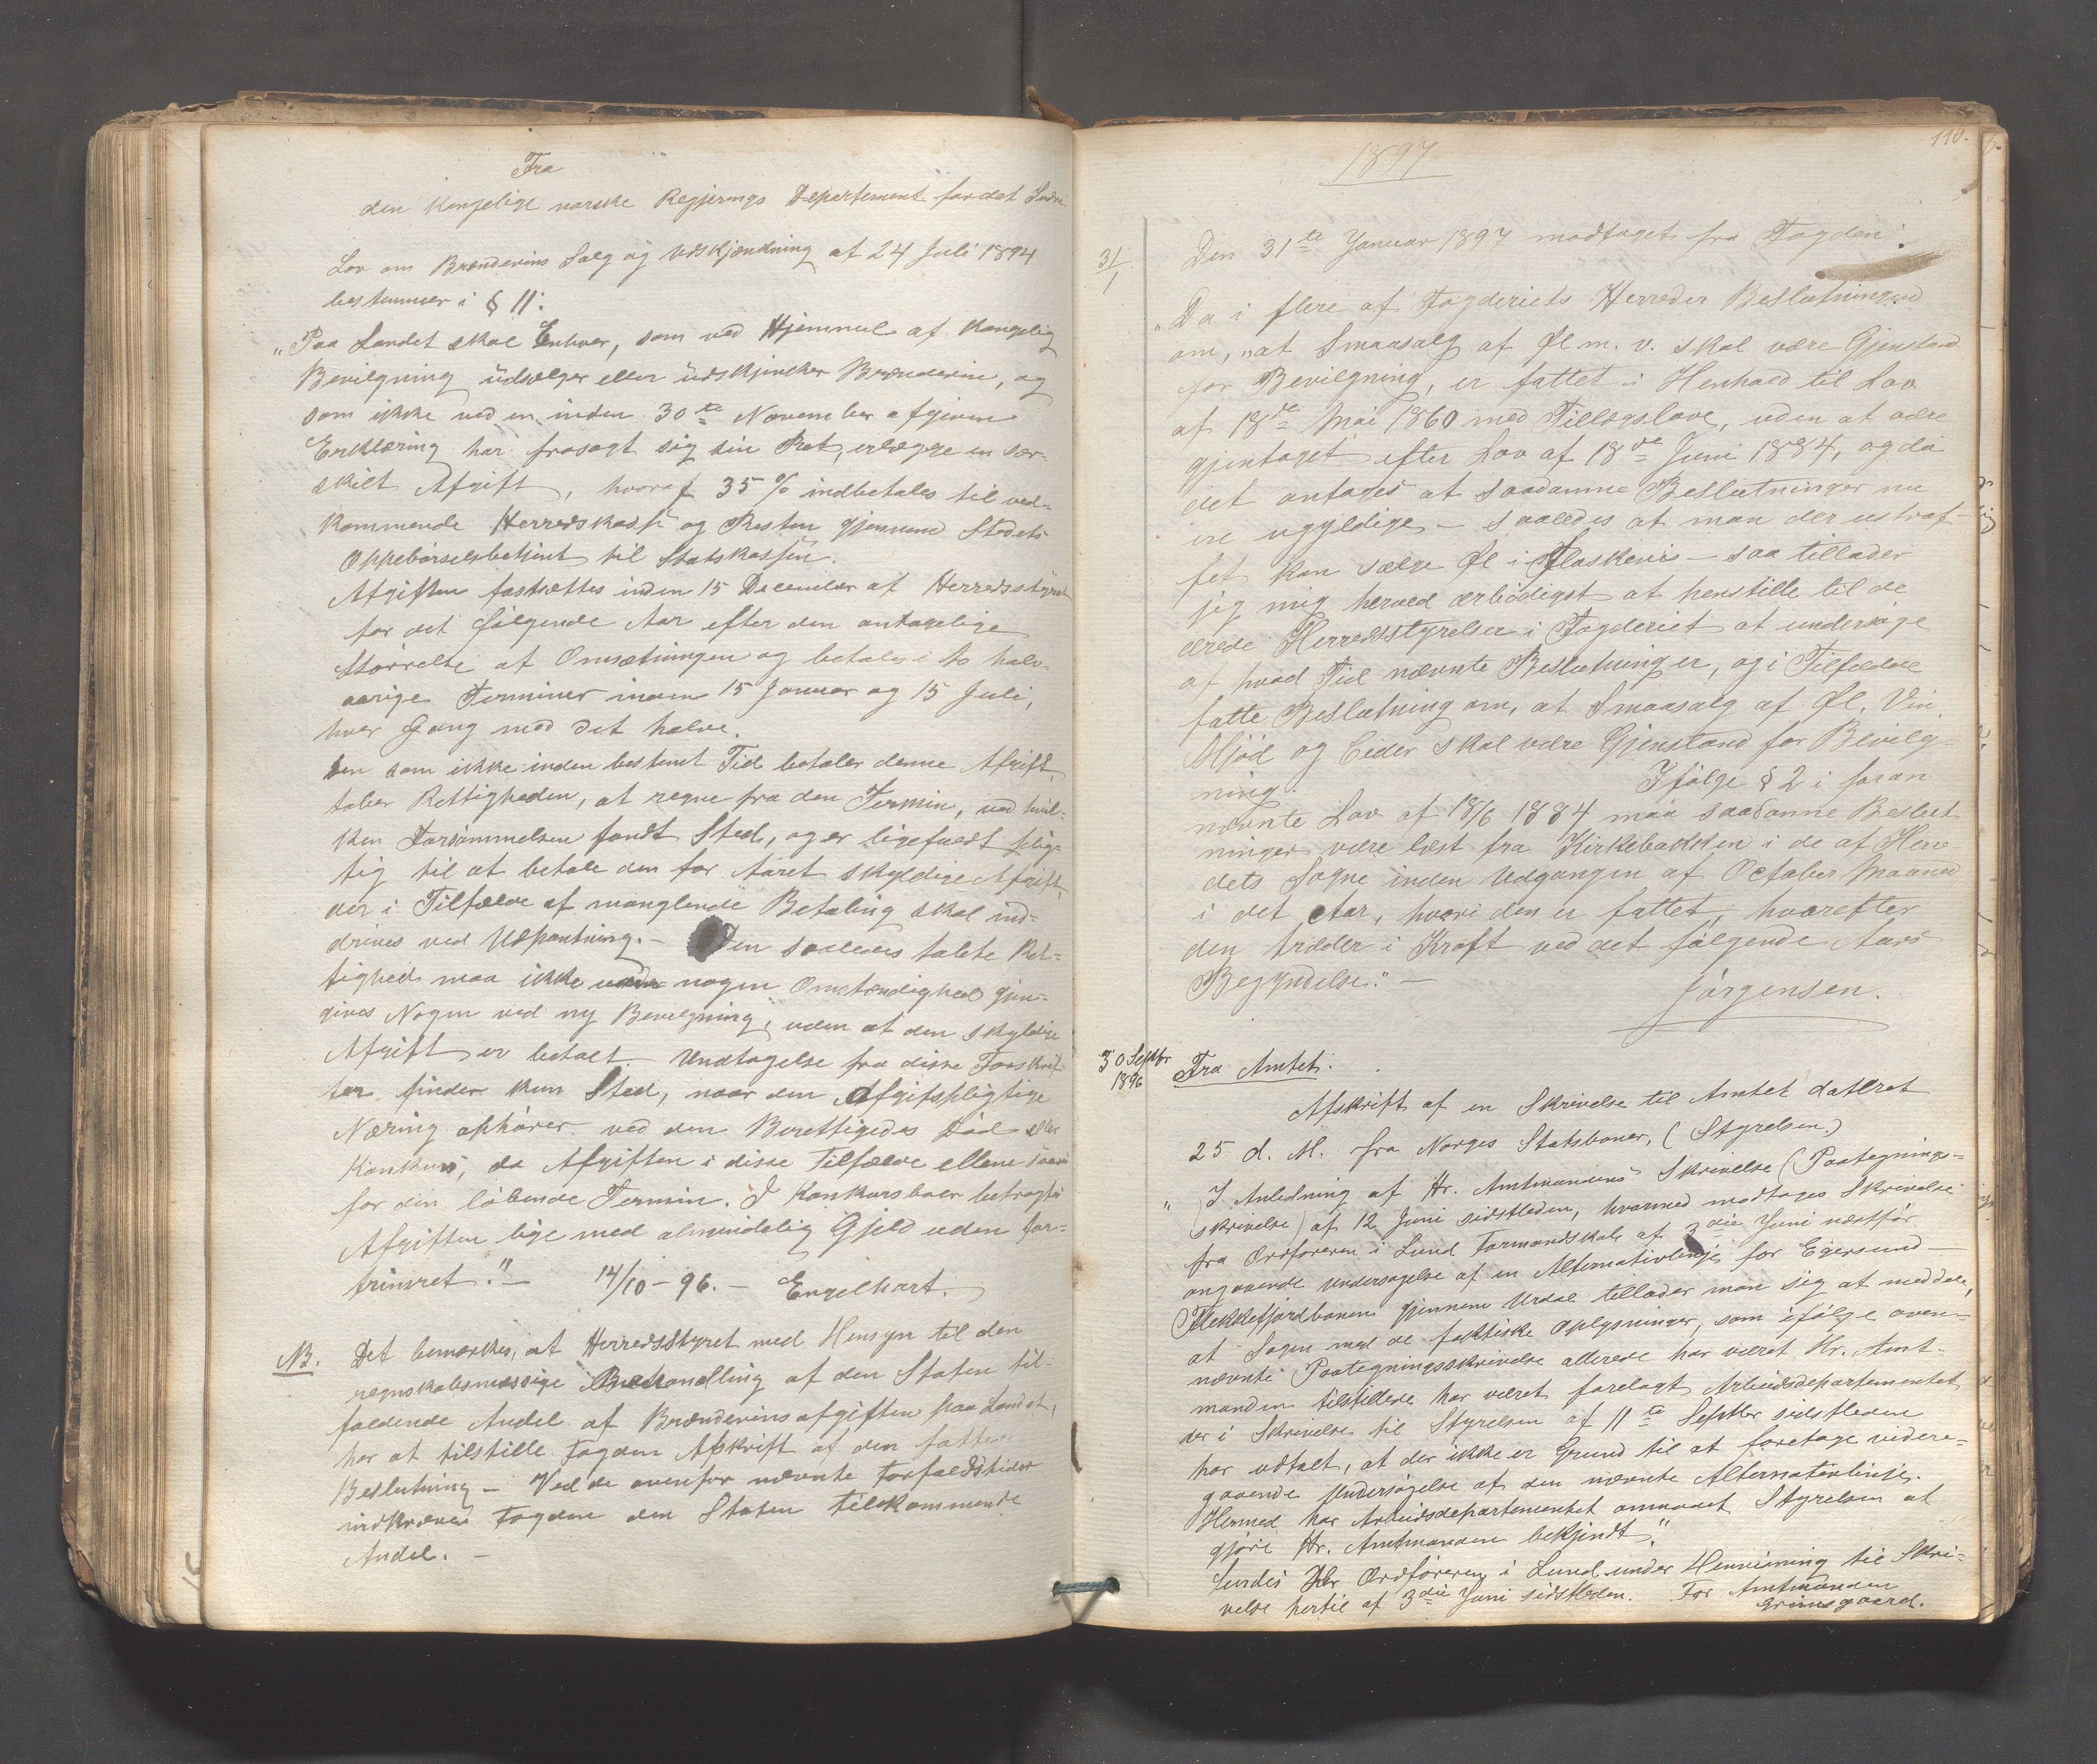 Fra
den kongelige norske Regjerings Departement for det Indre
Lov om Brændevins Salg og Udskjænkning af 24 Juli 1894
bestemmer i § 11:
"Paa Landet skal Enhver, som ved Hjemmel af Kongelig
Bevilgning udsælger eller udskjænker Brændevin, og
som ikke ved en inden 30te November afgiven
Erklæring har frasagt sig sin Ret, erlægge en sær-
skilt Afgift, hvoraf 35 % indbetales til ved-
kommende Herredskasse og Resten gjennem Stedets
Oppebørselsbetjent til Statskassen.
Afgiften fastsættes inden 15 December af Herredsstyret
for det følgende Aar efter den antagelige
Størrelse af Omsætningen og betales i to halv-
aarige Terminer inden 15 Januar og 15 Juli,
hver Gang med det halve.
Den som ikke inden bestemt Tid betaler denne Afgift,
taber Rettigheden, at regne fra den Termin, ved hvil-
ken Forsømmelsen fandt Sted, og er ligefuldt plig-
tig til at betale den for Aaret skyldige Afgift,
der i Tilfælde af manglende Betaling skal ind-
drives ved Udpantning. - Den saaledes tabte Ret-
tighed maa ikke under nogen Omstændighed gjen-
gives Nogen ved ny Bevilgning, uden at den skyldige
Afgift er betalt. Undtagelse fra disse Forskrif-
ter finder kun Sted, naar den Afgiftspligtige
Næring ophører ved den Berettigedes Død eller
Konkurs, da Afgiften i disse Tilfælde ellene svares
for den løbende Termin. I Konkursboer betragtes
Afgiften lige med almindelig Gjeld uden for-
trinsret." - 14/10 - 96. - Engelhart.
NB. Det bemærkes, at Herredsstyret med Hensyn til den
regnskabsmæssige Behandling af den Staten til-
faldende Andel af Brændevinsafgiften paa Landet,
har at tilstille Fogden Afskrift af den fattede
Beslutning - Ved de ovenfor nævnte Forfaldstider
indkræver Fogden den Staten tilkommende
Andel. -
110.
1897
31/1 Den 31te Januar 1897 modtaget fra Fogden:
"Da i flere af Fogderiets Herreder Beslutninger
om, "at Smaasalg af Øl m. v. skal være Gjenstand
for Bevilgning, er fattet i Henhold til Lov
af 18de Mai 1860 med Tillægslove, uden at være
gjentaget efter Lov af 18de Juni 1884, og da
det antages at saadanne Beslutninger nu
ere ugyldige - saaledes at man der ustraf-
fet kan sælge Øl i Flaskevis - saa tillader
jeg mig herved ærbødigst at henstille til de
ærede Herredsstyrelser i Fogderiet at undersøge
af hvad Tid nævnte Beslutninger, og i Tilfælde
fatte Beslutning om, at Smaasalg af Øl, Vin
Mjød og Cider skal være Gjenstand for Bevilg-
ning. Ifølge § 2 i foran
nævnte Lov af 18/6 1884 maa saadanne Beslut-
ninger være læst fra Kirkebakken i de af Herre-
dets Sogne inden Udgangen af October Maaned
i det Aar, hvori den er fattet, hvorefter
den træder i Kraft ved det følgende Aars
Begyndelse." -
Jørgensen.
30 Septbr 1896
Fra Amtet:
Afskrift af en Skrivelse til Amtet dateret
25 d. M. fra Norges Statsbaner, (Styrelsen.)
" I Anledning af Hr. Amtmandens Skrivelse (Paategnings-
skrivelse) af 12 Juni sidstleden, hvormed modtoges Skrivelse
fra Ordføreren i Lund Formandskab af 3die Juni næstfør
angaaende Undersøgelse af en Alternativlinje for Egersund -
Flekkefjordbanen gjennem Urdal tillader man sig at meddele,
at Sagen med de faktiske Oplysninger, som ifølge oven-
nævnte Paategningsskrivelse allerede har været Hr. Amt-
manden tilstillede har været forelagt Arbeidsdepartementet
der i Skrivelse til Styrelsen af 11te Septbr sidstleden
har udtalt, at der ikke er Grund til at foretage videre-
gaaende Undersøgelse af den nævnte Alternativlinje.
Hermed har Arbeidsdepartementet anmodet Styrelsen at
gjøre Hr. Amtmanden bekjendt."
Sendes Hr. Ordføreren i Lund under Henvisning til Skri-
velse hertil af 3die Juni sidstleden. For Amtmanden
Grimsgaard.